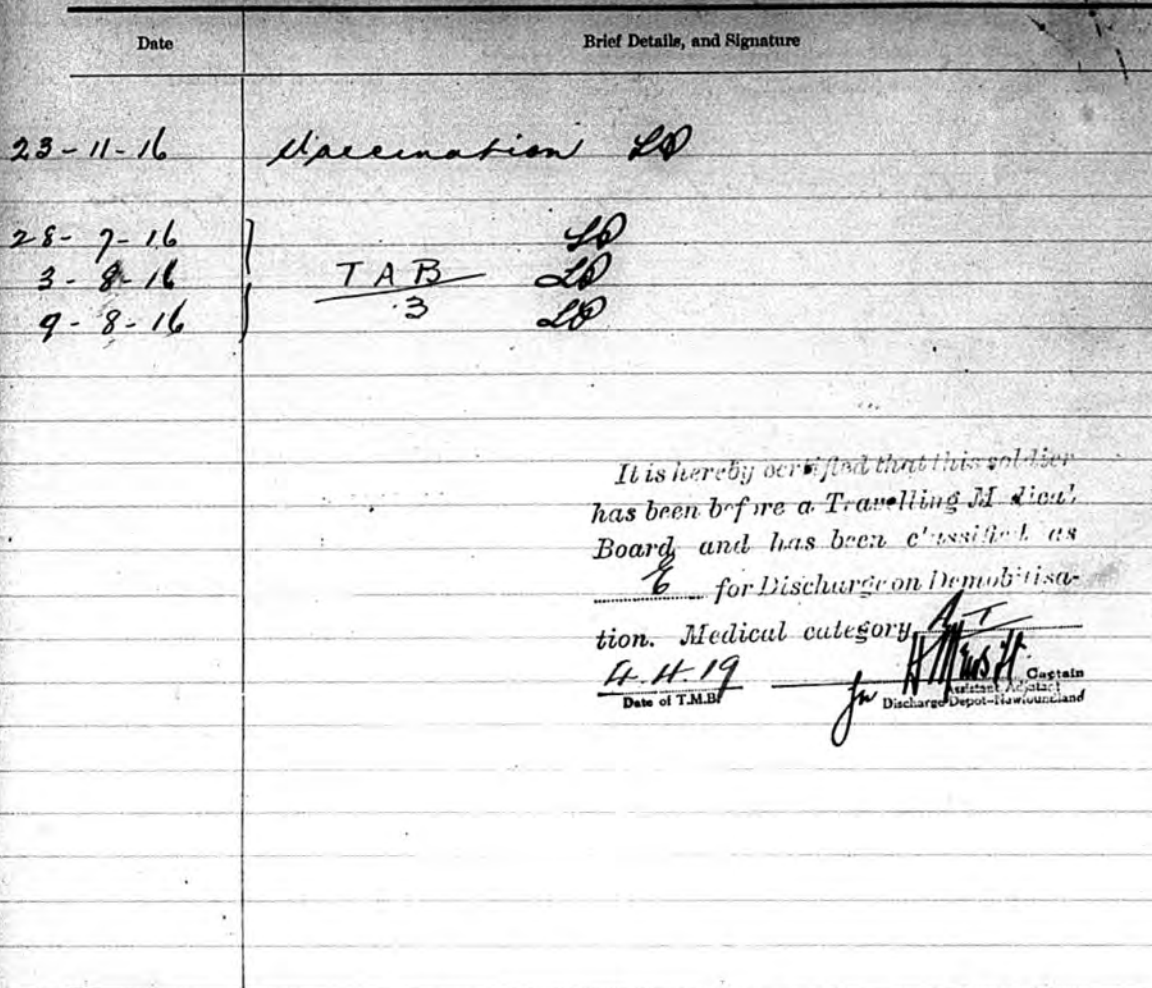 Date Brief Details, and Signature
23-11-16 Vaccination LP
28-7-16 LP
3-8-16 TAB LP
9-8-16 3 LP
It is hereby certified that this soldier
has been before a Travelling Medical
Board, and has been classified as
E for Discharge on Demobilisa-
tion. Medical category A I
4.4.19
Captain
Date of T.M.B. for Assistant Adjutant
Discharge Depot-Newfoundland